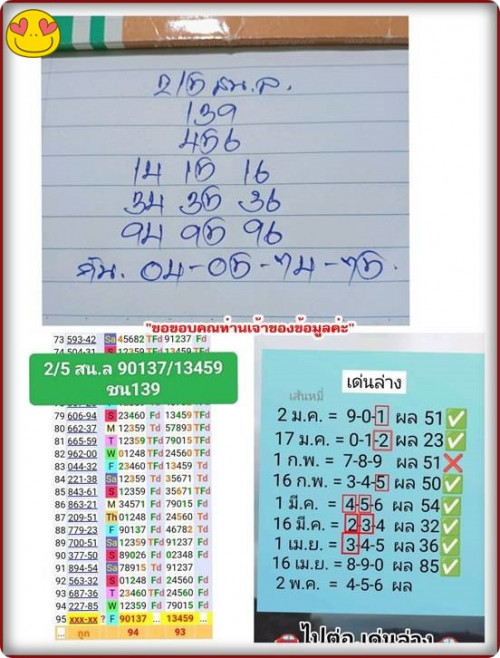 2/5 สน.ล.
139
456
14 15 16
34 35 36
94 95 96
กัน. 04-05-74-75.
"ขอขอบคุณท่านเจ้าของข้อมูลค่ะ"
73 593-42 Sa 45682 TFd 91237 Fd
2/5 สน.ล 90137/13459
ชน139
79 606-94 S 23460 Fd 13459 TFd
80 662-37 M 12359 Fd 57893 TFd
81 665-59 T 12359 TFd 79015 TFd
82 962-00 W 01248 TFd 24560 Td
83 044-32 F 23460 TFd 13459 Td
84 221-38 Sa 12359 Td 35671 Td
85 843-61 S 12359 Fd 35671 TFd
86 863-21 M 34571 Fd 79015 Fd
87 209-51 Th 01248 Fd 24560 Td
88 779-23 F 90137 Fd 46782 Td
89 700-51 Sa 12359 TFd 91237 Fd
90 377-50 S 89026 Fd 02348 Fd
91 894-54 Sa 78915 Td 91237
92 563-32 S 01248 Fd 24560 Fd
93 687-36 T 23460 TFd 24560 Fd
94 227-85 W 12359 Fd 79015 Fd
95 xxx-xx ? F 90137 ... 13459 ...
... ถูก 94 93 ...
เด่นล่าง
เส้นหมี่
2 ม.ค. = 9-0-1 ผล 51 ✅
17 ม.ค. = 0-1-2 ผล 23 ✅
1 ก.พ. = 7-8-9 ผล 51 ❌
16 ก.พ. = 3-4-5 ผล 50 ✅
1 มี.ค. = 4-5-6 ผล 54 ✅
16 มี.ค. = 2-3-4 ผล 32 ✅
1 เม.ย. = 3-4-5 ผล 36 ✅
16 เม.ย. = 8-9-0 ผล 85 ✅
2 พ.ค. = 4-5-6 ผล
ไปต่อ เด่นล่าง